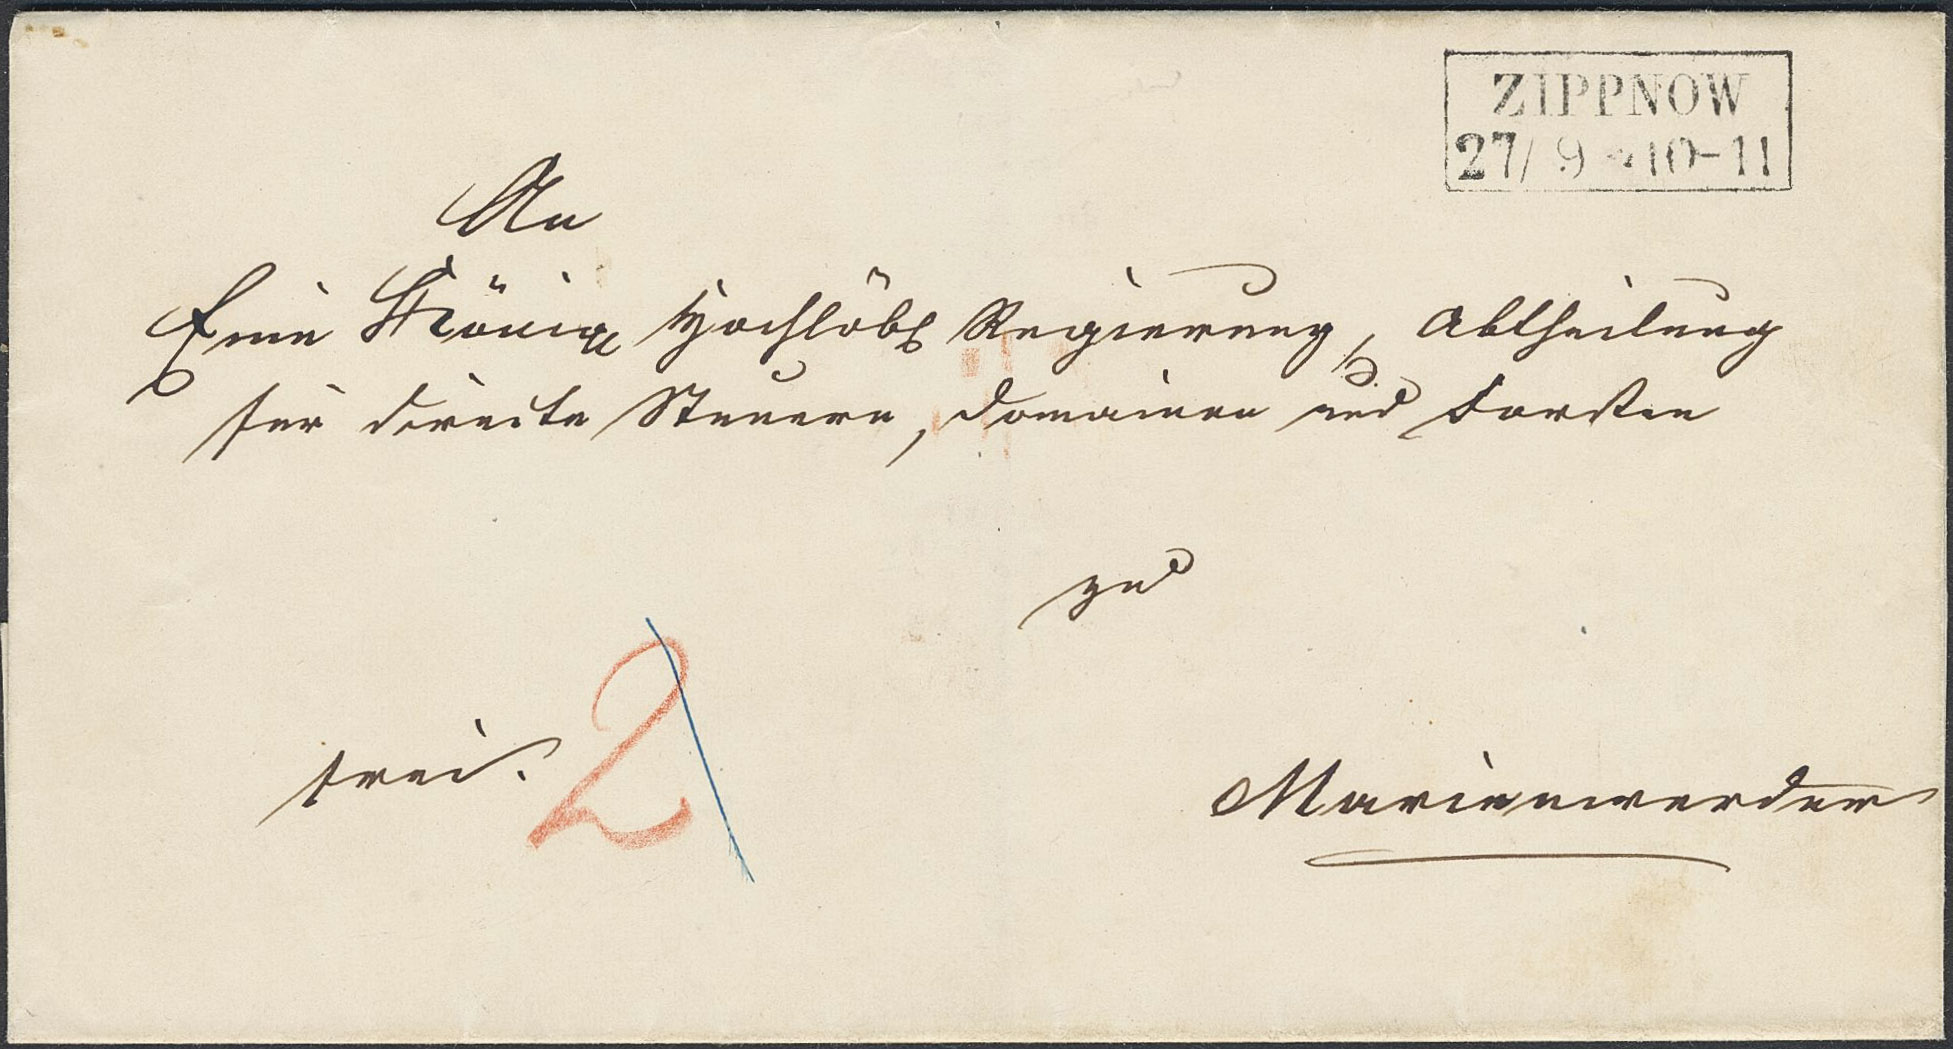 ZIPPNOW
27/ 9 * 10-11
An
Eine Königl Hochlöbl Regierung, Abtheilung
für directe Steuern, Domainen und Forsten
zu
frei. 2
Marienwerder